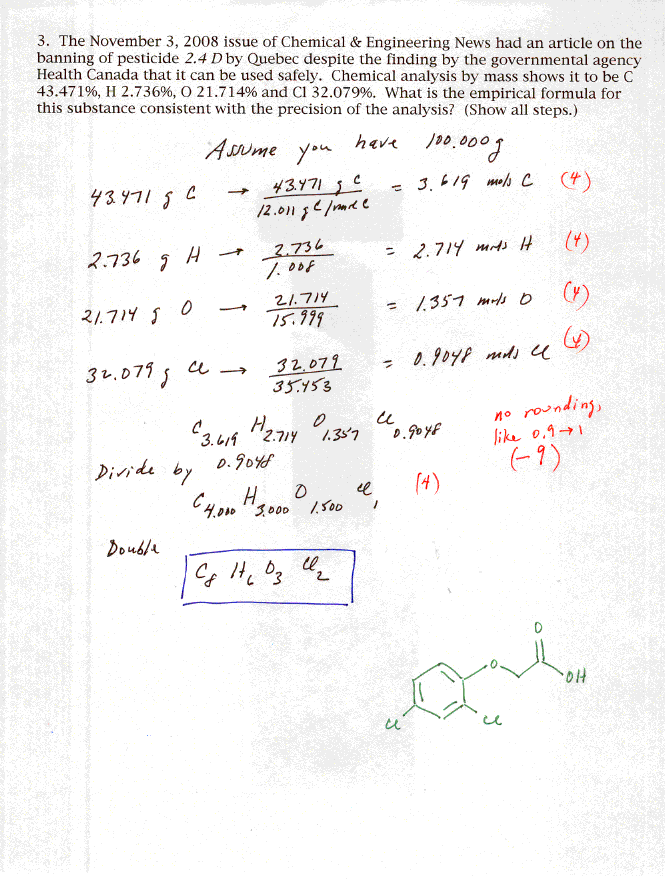 3. The November 3, 2008 issue of Chemical & Engineering News had an article on the
banning of pesticide 2.4 D by Quebec despite the finding by the governmental agency
Health Canada that it can be used safely. Chemical analysis by mass shows it to be C
43.471%, H 2.736%, O 21.714% and Cl 32.079%. What is the empirical formula for
this substance consistent with the precision of the analysis? (Show all steps.)
Assume you have 100.000 g
43.471 g C → 43.471 g C / 12.011 g C/mole = 3.619 mols C (4)
2.736 g H → 2.736 / 1.008 = 2.714 mols H (4)
21.714 g O → 21.714 / 15.999 = 1.357 mols O (4)
32.079 g Cl → 32.079 / 35.453 = 0.9048 mols Cl (4)
C3.619 H2.714 O1.357 Cl0.9048
no rounding,
like 0.9 → 1
(-9)
Divide by 0.9048
C4.000 H3.000 O1.500 Cl1 (4)
Double
C8 H6 O3 Cl2
O
O
OH
Cl
Cl